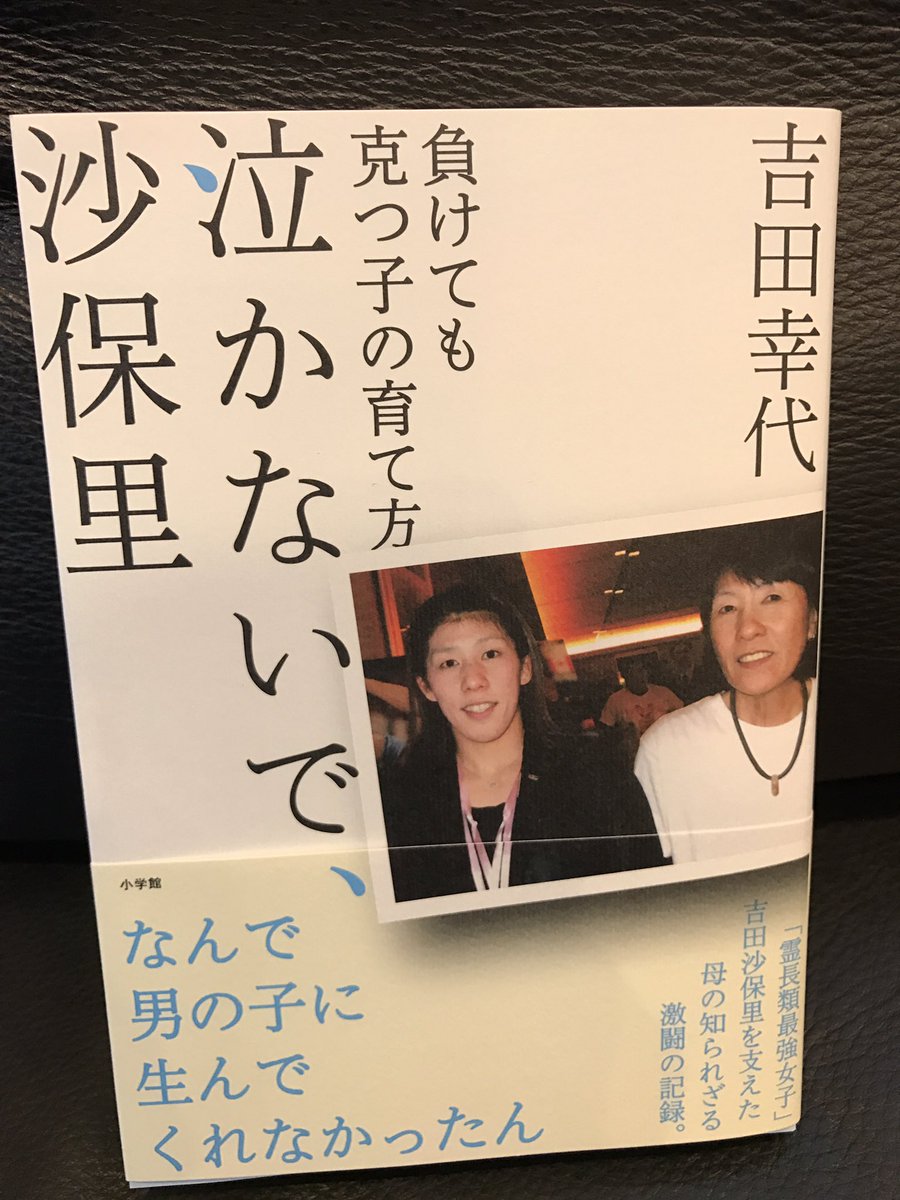 吉田幸代
負けても
克つ子の育て方
泣かないで、
沙保里
小学館
なんで
男の子に
生んで
くれなかったん
「霊長類最強女子」
吉田沙保里を支えた
母の知られざる
激闘の記録。